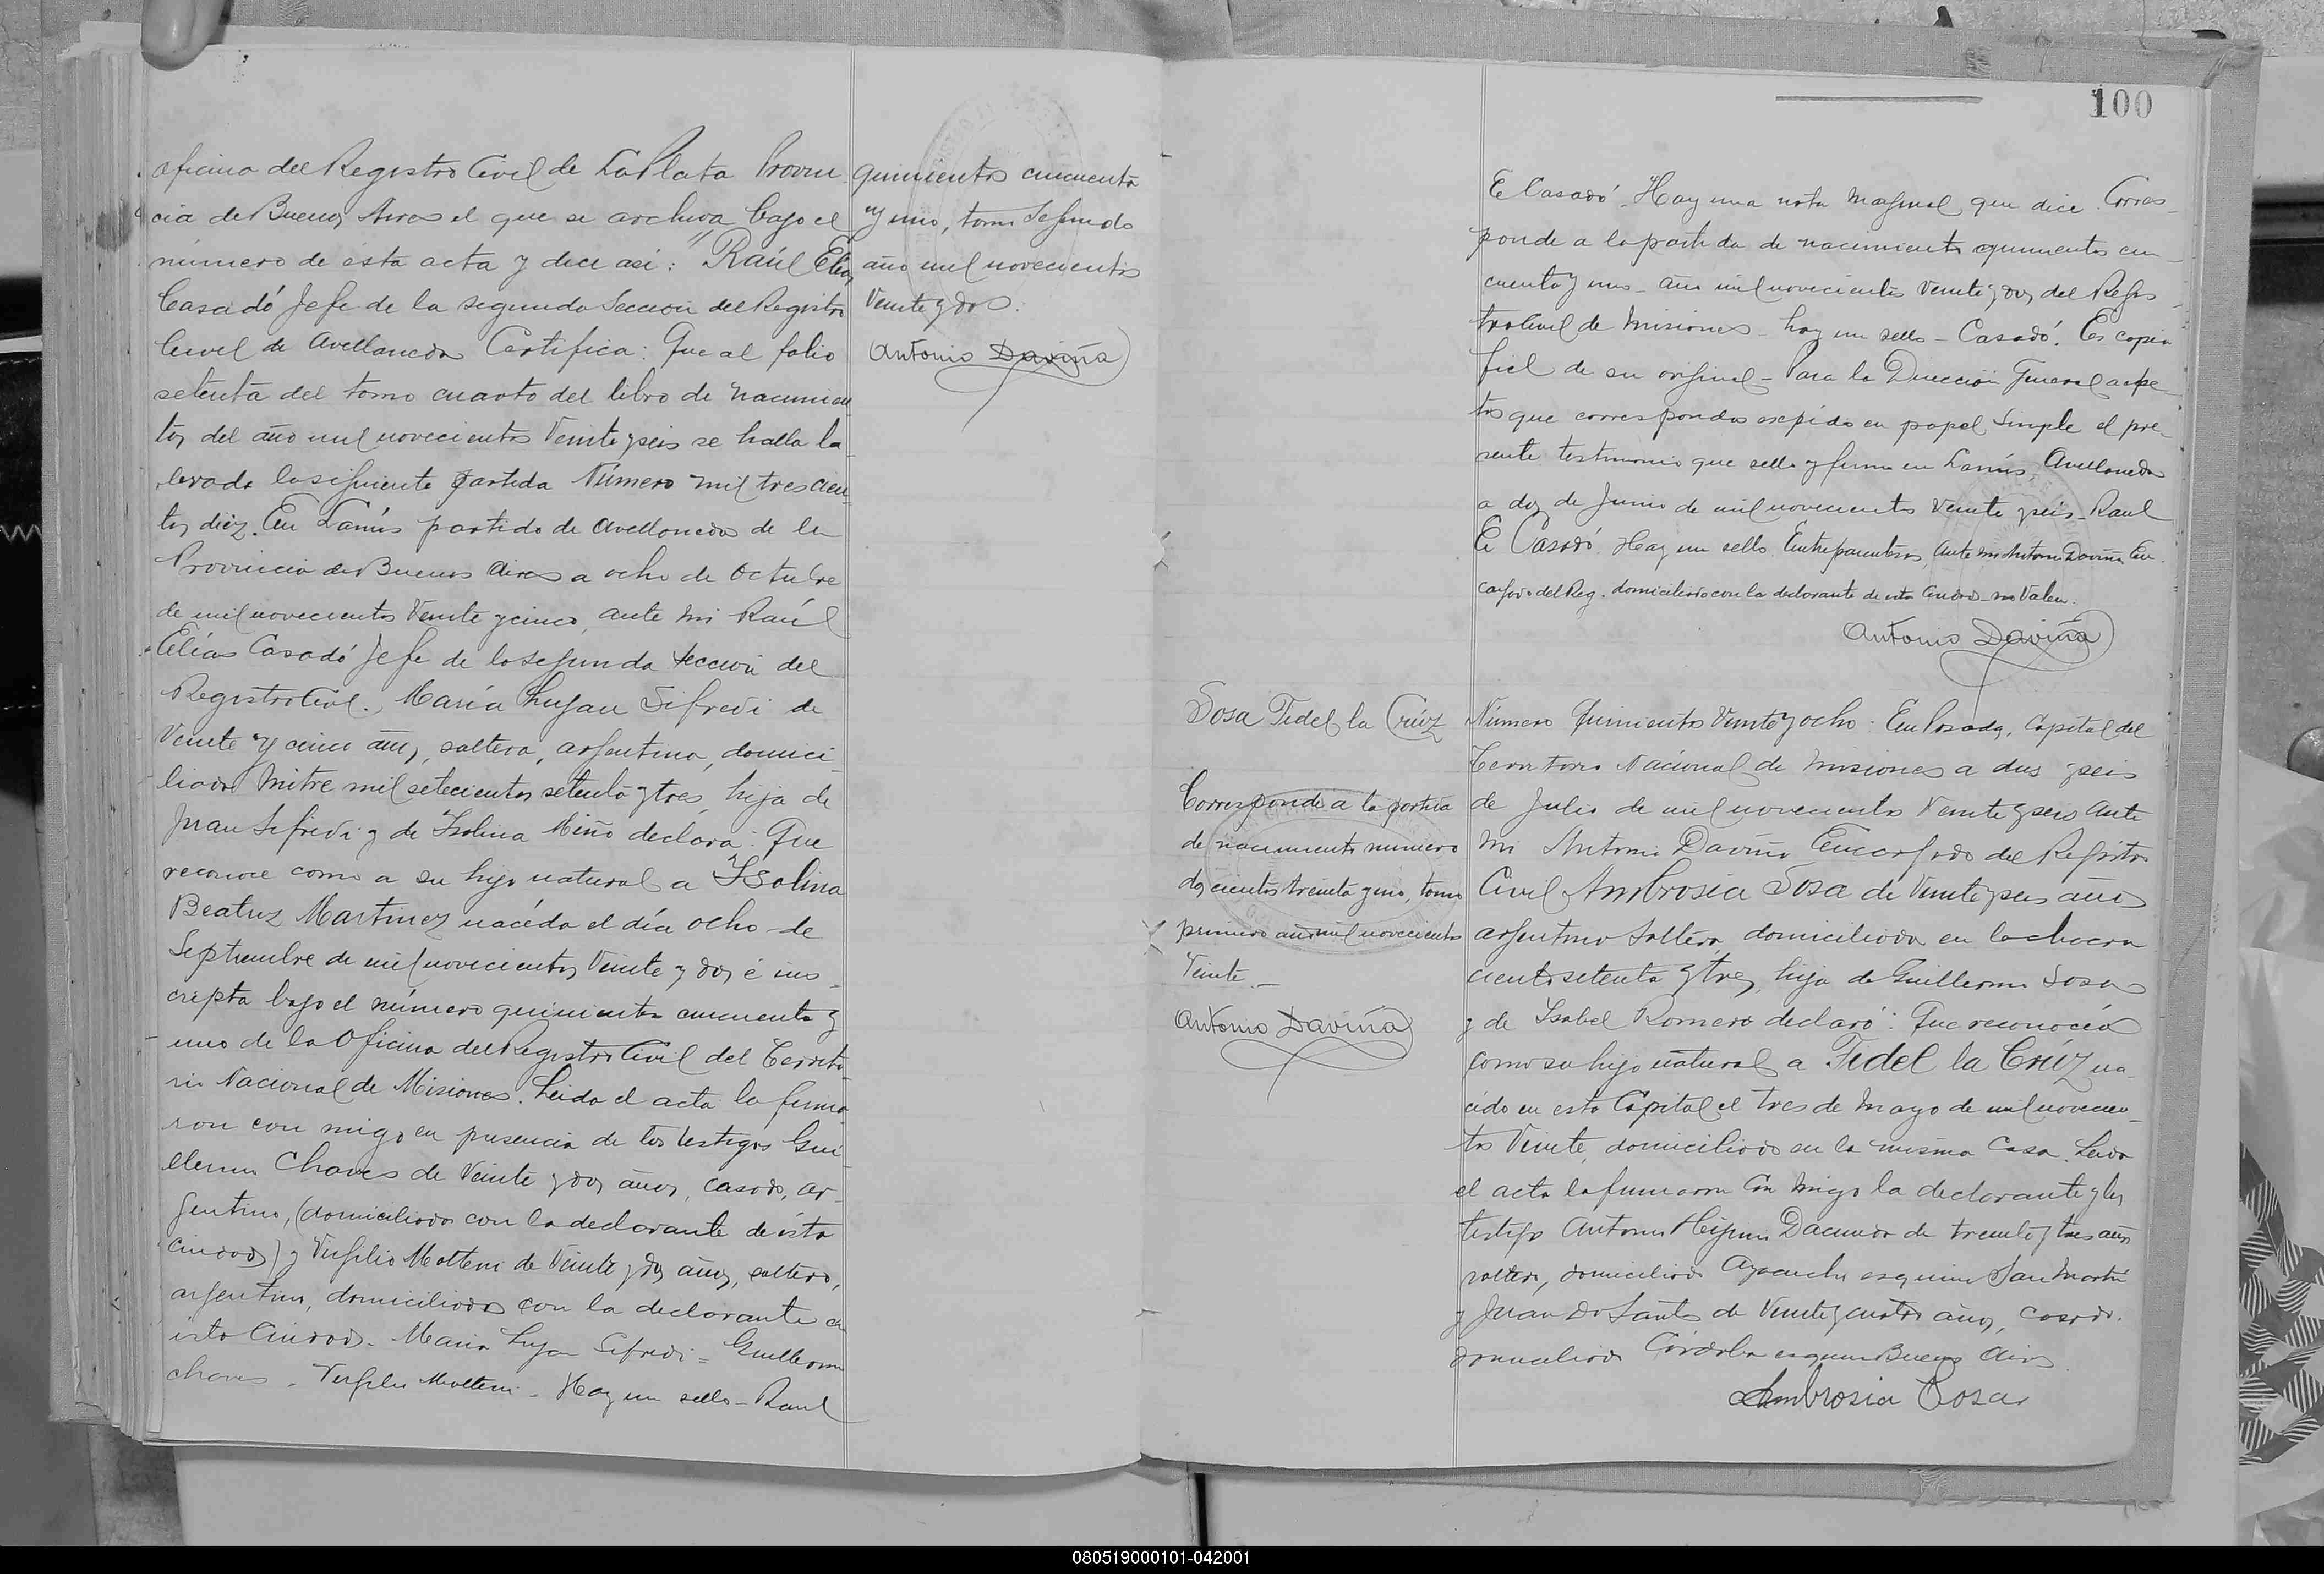 oficina del Registro Civil de La Plata Provin
cia de Buenos Aires el que se archiva bajo el
número de esta acta y dice asi: "Raúl Elias
Casadó Jefe de la segunda Seccion del Registro
Civil de Avellaneda Certifica: Que al folio
setenta del tomo cuarto del libro de nacimien
tos del año mil novecientos Veinte y seis se halla la
levada la siguiente partida Número mil trescien
tos diez. En Lanús partido de Avellaneda de la
Provincia de Buenos Aires a ocho de Octubre
de mil novecientos Veinte y cinco, ante mi Raúl
Elías Casadó Jefe de la segunda seccion del
Registro Civil. María Lujan Sifredi de
Veinte y cinco años, soltera, argentina, domici
liada Mitre mil setecientos setenta y tres, hija de
Juan Sifredi y de Isolina Miño declara: Que
reconoce como a su hija natural a Isolina
Beatriz Martinez nacida el día ocho de
Septiembre de mil novecientos Veinte y dos é ins
cripta bajo el número quinientos cincuenta y
uno de la Oficina del Registro Civil del Territo
rio Nacional de Misiones. Leida el acta la firma
ron con migo en presencia de los testigos Gui
llermo Chaves de Veinte y dos años, casado, ar
gentino, (domiciliado con la declarante de ésta
Ciudad) y Virgilio Molteni de Veinte y dos años, soltero,
argentino, domiciliados con la declarante en
esta Ciudad. Maria Lujan Sifredi = Guillermo
Chaves. Virgilio Molteni - Hay un sello - Raul
quinientos cincuenta
y uno, tomo Segundo
año mil novecientos
Veinte y dos.
Antonio Daviña
100
E Casadó. Hay una nota marginal que dice Corres
ponde a la partida de nacimiento quinientos cin
cuenta y uno - año mil novecientos Veinte y dos del Regis
tro Civil de Misiones - hay un sello - Casadó. Es copia
fiel de su original - Para la Dirección General a efec
tos que corresponda expido en papel Simple el pre
sente testimonio que sello y firmo en Lanús, Avellaneda
a dos de Junio de mil novecientos Veinte y seis - Raul
E Casadó. Hay un sello. Entre parentesis, Ante mi Antonio Daviña En
cargado del Reg. domiciliado con la declarante de esta Ciudad - no Valen.
Antonio Daviña
Sosa Fidel la Crúz
Corresponde a la partida
de nacimiento numero
dos cientos treinta y uno, tomo
primero año mil novecientos
Veinte.-
Antonio Daviña
Número Quinientos Veinte y ocho: En Posadas, Capital del
Territorio Nacional de Misiones a diez y seis
de Julio de mil novecientos Veinte y seis ante
mi Antonio Daviña Encargado del Registro
Civil Ambrosia Sosa de Veinte y seis años
argentina soltera domiciliada en la chacra
ciento setenta y tres, hija de Guillermo Sosa
y de Isabel Romero declaró: Que reconocía
como su hijo natural a Fidel la Crúz na
cido en esta Capital el tres de Mayo de mil novecien
tos Veinte, domiciliado en la misma Casa. Leida
el acta la firmaron Con migo la declarante y los
testigos Antonio Higinio Dacunda de treinta y tres años
soltero, domiciliado Ayacucho esquina San Martín
y Juan Do Santo de Veinte y cuatro años, casado.
domiciliado Córdoba esquina Buenos Aires
Ambrosia Sosa
080519000101-042001